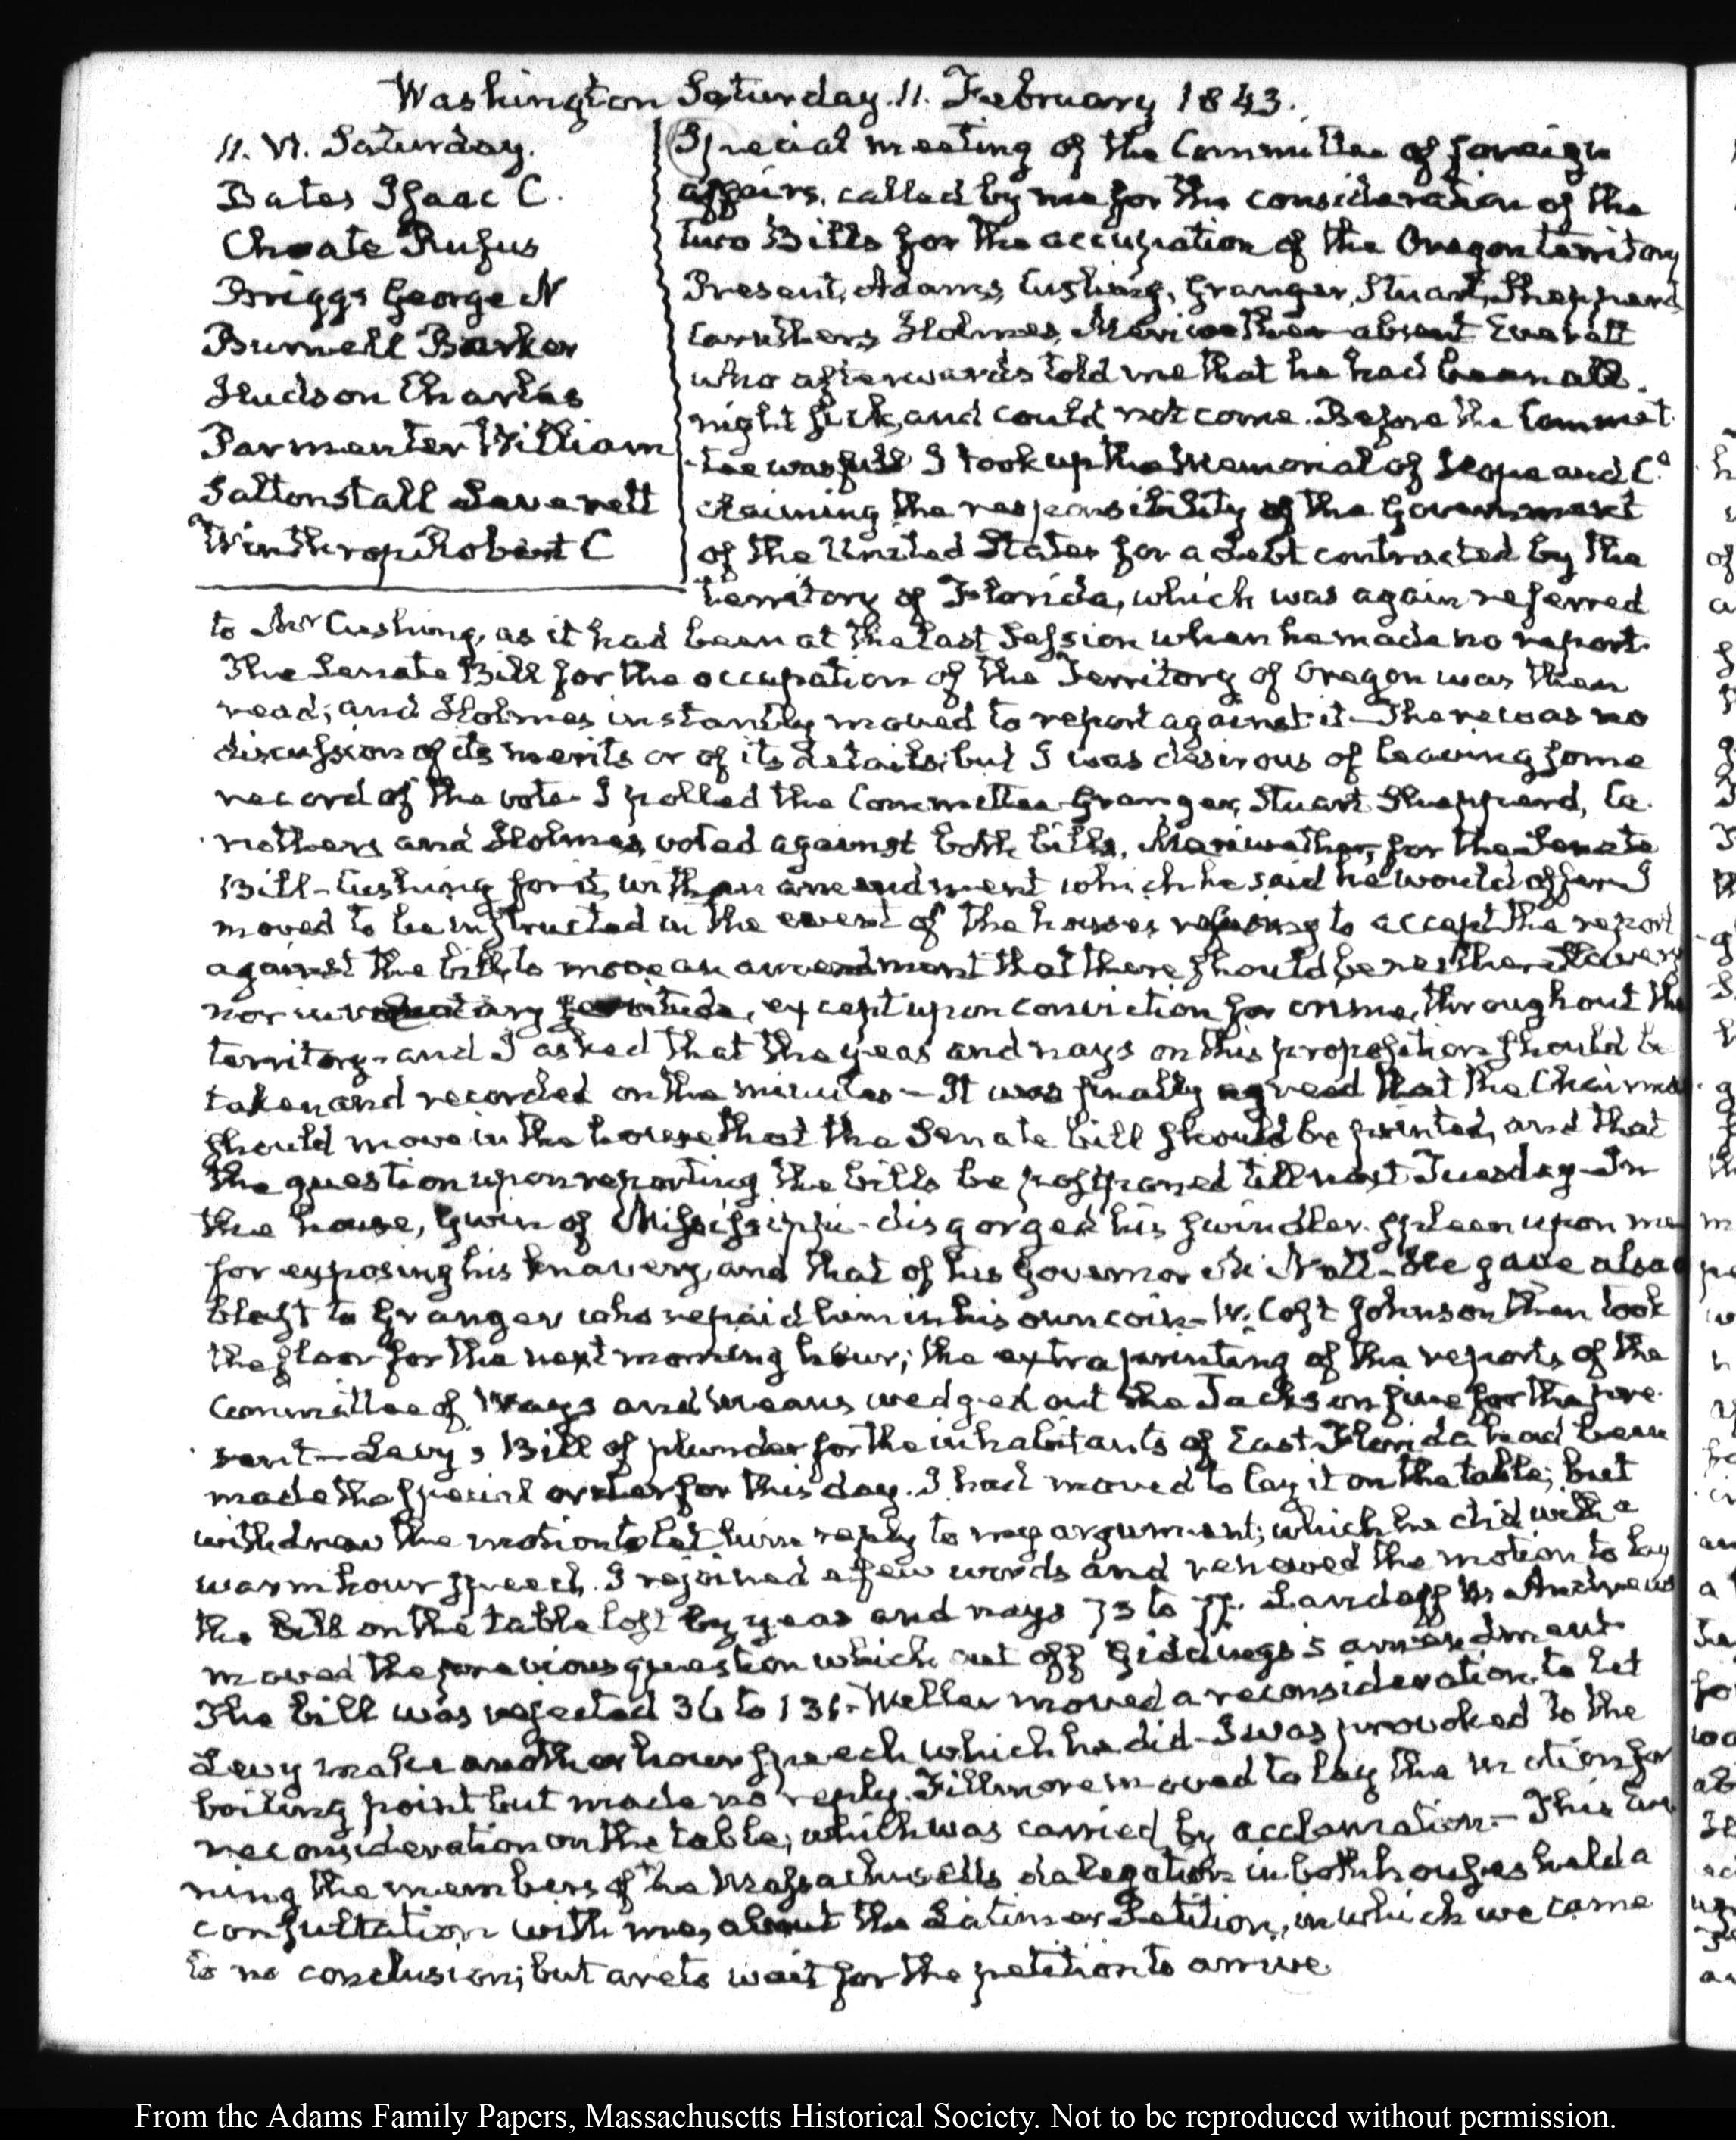 Washington Saturday. 11. February 1843.
11. VI. Saturday.
Bates Isaac C.
Choate Rufus
Briggs George N
Burnell Barker
Hudson Charles
Parmenter William
Saltonstall Leverett
Winthrop Robert C
Special meeting of the Committee of foreign
affairs, called by me for the consideration of the
two Bills for the occupation of the Oregon territory
Present, Adams, Cushing, Granger, Stuart, Shepperd,
Caruthers, Holmes, Meriwether absent Everett
who afterwards told me that he had been all
night sick, and could not come. Before the Commit-
tee was full I took up the Memorial of Hope and Co.
claiming the responsibility of the Government
of the United States for a debt contracted by the
territory of Florida, which was again referred
to Mr Cushing, as it had been at the last Session when he made no report.
The Senate Bill for the occupation of the Territory of Oregon was then
read; and Holmes instantly moved to report against it - There was no
discussion of its merits or of its details; but I was desirous of leaving some
record of the vote. I polled the Committee Granger, Stuart Shepperd, Ca-
rothers and Holmes, voted against both bills, Meriwether, for the Senate
Bill - Cushing for it, with an amendment which he said he would offer. I
moved to be instructed in the event of the houses refusing to accept the report
against the bill, to move an amendment that there should be neither slavery
nor involuntary servitude, except upon conviction for crime, throughout the
territory - and I asked that the yeas and nays on this proposition should be
taken and recorded on the minutes - It was finally agreed that the Chairma
should move in the house that the Senate bill should be printed, and that
the question upon reporting the bills be postponed till next Tuesday - In
the house, Gwin of Mississippi - disgorged his swindler spleen upon me
for exposing his knavery, and that of his Governor Mc Nutt - He gave also a
blast to Granger who repaid him in his own coin - W. Cost Johnson then took
the floor for the next morning hour; the extra printing of the reports of the
Committee of Ways and Means wedged out the Jackson fine for the pre-
sent - Levy's Bill of plunder for the inhabitants of East Florida had been
made the special order for this day. I had moved to lay it on the table; but
withdrew the motion to let him reply to my argument; which he did with a
warm hour speech. I rejoined a few words and renewed the motion to lay
the bill on the table lost by yeas and nays 73 to 77. Landaff W. Andrews
moved the previous question which cut off Giddings's amendment
The bill was rejected 36 to 136 - Weller moved a reconsideration to let
Levy make another hour speech which he did - I was provoked to the
boiling point but made no reply. Fillmore moved to lay the motion for
reconsideration on the table; which was carried by acclamation - This Eve-
ning the members of the Massachusetts delegation in both houses held a
consultation with me, about the Latimer Petition, in which we came
to no conclusion; but are to wait for the petition to arrive.
From the Adams Family Papers, Massachusetts Historical Society. Not to be reproduced without permission.